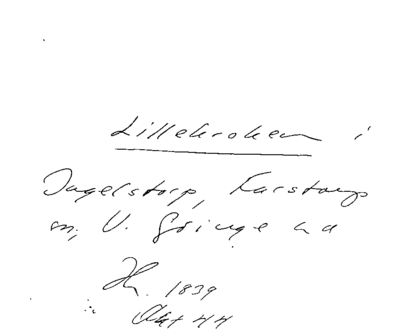 Lillekroken i
Ingelstorp, Karstorps
sn, V. Göinge hd
Hn. 1839
Akt 44